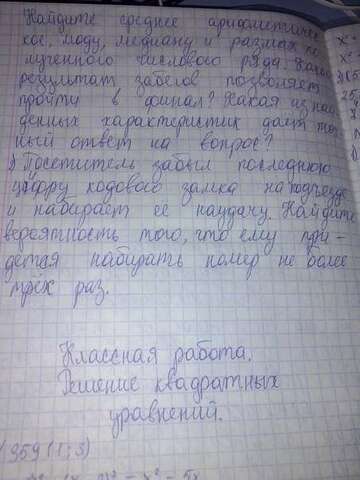 Найдите среднее арифметичес
кое, моду, медиану и размах по
лученного числового ряда. Какой
результат забегов позволяет
пройти в финал? Какая из най
денных характеристик дала точ
ный ответ на вопрос?
Посетитель забыл последнюю
цифру кодового замка на подъезде
и набирает ее наудачу. Найдите
вероятность того, что ему при-
дется набирать номер не более
трёх раз.
Классная работа.
Решение квадратных
уравнений.
959 (1; 3)